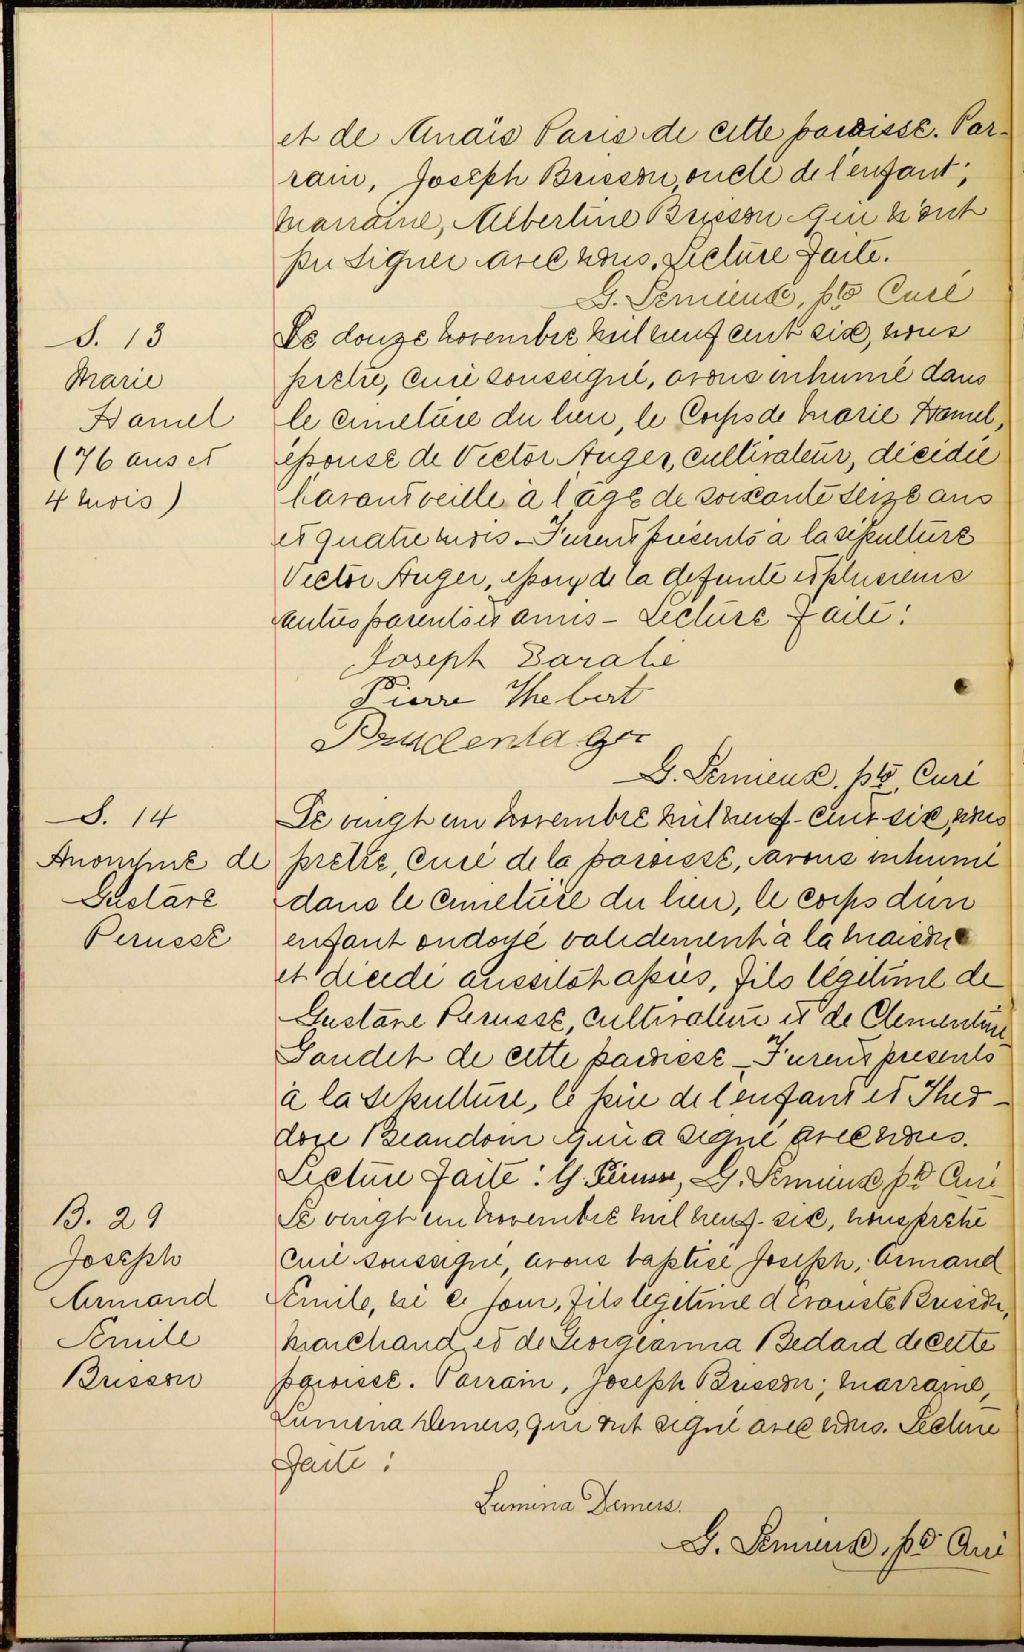 et de Anaïs Paris de cette paroisse. Par-
rain, Joseph Brisson, oncle de l'enfant;
marraine, Albertine Brisson qui n'ont
pu signer avec nous. Lecture faite.
G. Lemieux, ptre Curé
S. 13
Marie
Hamel
(76 ans et
4 mois)
Le douze novembre mil neuf cent six, nous
prêtre, curé soussigné, avons inhumé dans
le cimetière du lieu, le Corps de Marie Hamel,
épouse de Victor Auger, cultivateur, décédée
l'avant veille à l'âge de soixante seize ans
et quatre mois - Furent présents à la sépulture
Victor Auger, époux de la defunte et plusieurs
autres parents et amis - Lecture faite:
Joseph
Pierre
G. Lemieux, ptre, Curé
S. 14
Anonyme de
Gustave
Perusse
Le vingt un novembre mil neuf-cent-six, nous
prêtre, Curé de la paroisse, avons inhumé
dans le cimetière du lieu, le corps d'un
enfant ondoyé validement à la maison
et décedé aussitôt après, fils légitime de
Gustave Perusse, cultivateur et de Clementine
Gaudet de cette paroisse - Furent presents
à la sepulture, le père de l'enfant et Theo-
dore Beaudoin qui a signé avec nous.
Lecture faite: G. Pérusse, G. Lemieux ptre Curé
B. 29
Joseph
Armand
Emile
Brisson
Le vingt un novembre mil neuf-six, nous prêtre
curé soussigné, avons baptisé Joseph, Armand
Emile, né ce jour, fils legitime d'Evariste Brisson,
marchand et de Georgianna Bedard de cette
paroisse. Parrain, Joseph Brisson; marraine,
Lumina Demers, qui ont signé avec nous. Lecture
faite:
Lumina Demers.
G. Lemieux, ptre Curé